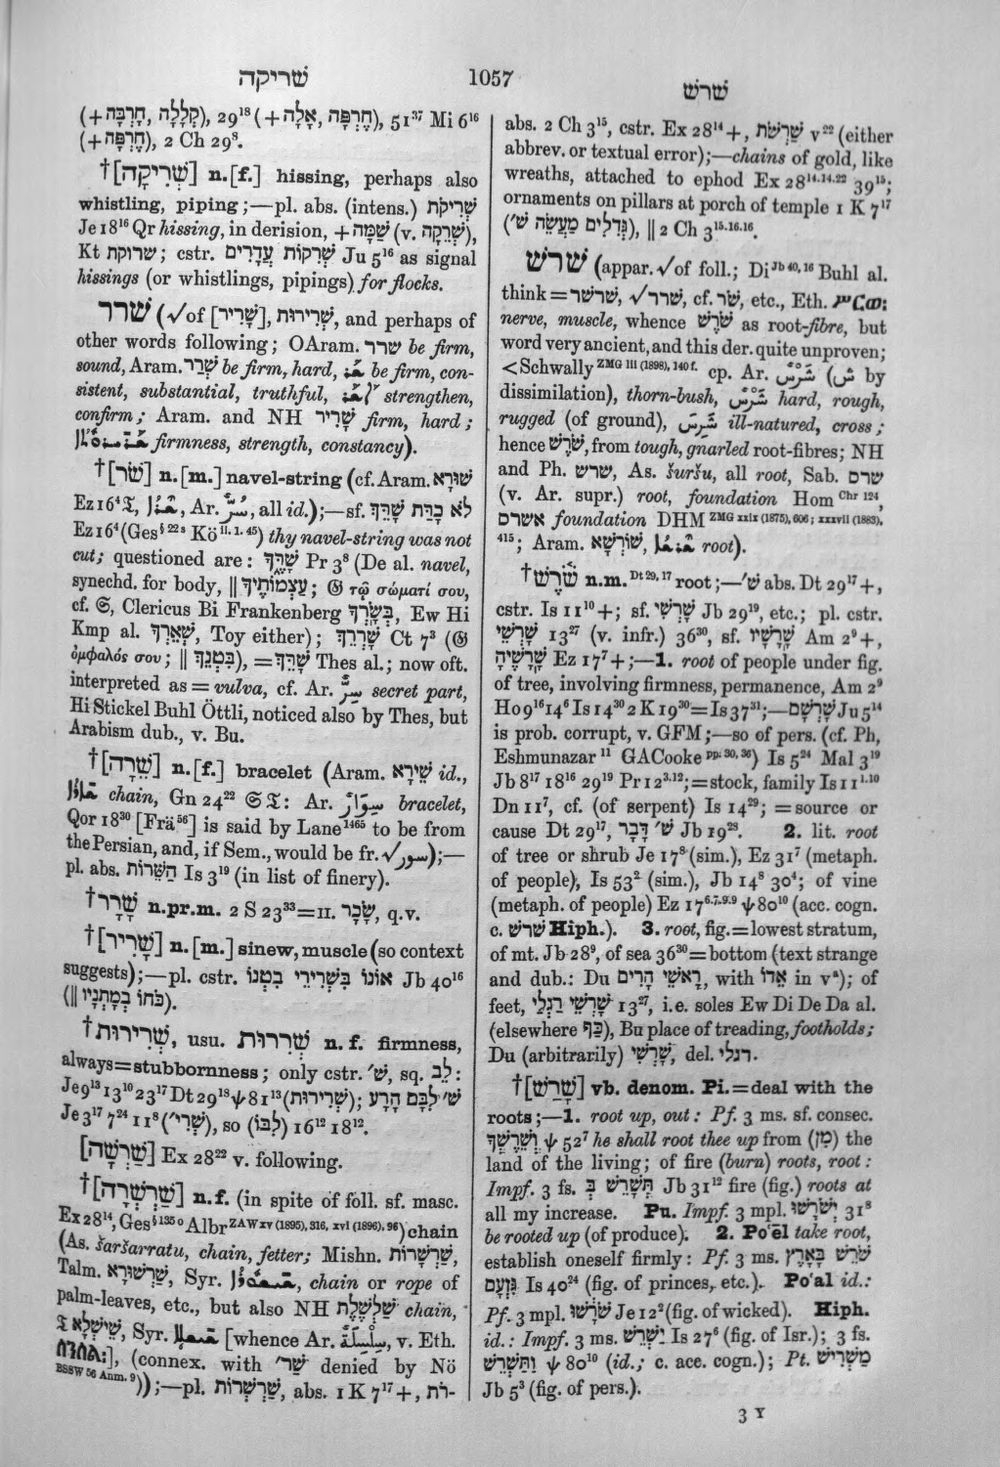 שריקה 1057 שרשׁ
(+חָרְבָּה, קְלָלָה), 29¹⁸ (+אָלָה, חֶרְפָּה), 51³⁷ Mi 6¹⁶
(+חֶרְפָּה), 2 Ch 29⁸.
†[שְׁרִיקָה] n.[f.] hissing, perhaps also
whistling, piping;—pl. abs. (intens.) שְׁרִיקֹת
Je 18¹⁶ Qr hissing, in derision, +שַׁמָּה (v. שְׁרֵקָה),
Kt שרוקת; cstr. שְׁרִקוֹת עֲדָרִים Ju 5¹⁶ as signal
hissings (or whistlings, pipings) for flocks.
שרר (√of [שָׁרִיר], שְׁרִירוּת, and perhaps of
other words following; OAram. שרר be firm,
sound, Aram. שְׁרַר be firm, hard, be firm, con-
sistent, substantial, truthful, strengthen,
confirm; Aram. and NH שָׁרִיר firm, hard;
firmness, strength, constancy).
†[שֹׁר] n.[m.] navel-string (cf. Aram. שׁוּרָא
Ez 16⁴ 𝔗, Ar. سُرّ, all id.);—sf. לֹא כָרַּת שָׁרֵּךְ
Ez 16⁴ (Ges§ 22 s Kö ii. 1. 45) thy navel-string was not
cut; questioned are: שָׁרֶּךָ Pr 3⁸ (De al. navel,
synechd. for body, ‖ עַצְמוֹתֶיךָ; 𝔊 τῷ σώματί σου,
cf. 𝔖, Clericus Bi Frankenberg בְּשָׂרְךָ, Ew Hi
Kmp al. שְׁאֵרְךָ, Toy either); שָׁרְרֵךְ Ct 7³ (𝔊
ὀμφαλός σου; ‖ בִּטְנֵךְ), =שָׁרֵּךְ Thes al.; now oft.
interpreted as = vulva, cf. Ar. سِرّ secret part,
Hi Stickel Buhl Öttli, noticed also by Thes, but
Arabism dub., v. Bu.
†[שֵׁרָה] n.[f.] bracelet (Aram. שֵׁירָא id.,
chain, Gn 24²² 𝔖 𝔗: Ar. سِوَارٌ bracelet,
Qor 18³⁰ [Frä⁵⁶] is said by Lane¹⁴⁶⁵ to be from
the Persian, and, if Sem., would be fr. √سور);—
pl. abs. הַשֵּׁרוֹת Is 3¹⁹ (in list of finery).
†שָׁרָר n.pr.m. 2 S 23³³=II. שָׂכָר, q.v.
†[שָׁרִיר] n.[m.] sinew, muscle (so context
suggests);—pl. cstr. אוֹנוֹ בִּשְׁרִירֵי בִטְנוֹ Jb 40¹⁶
(‖ כֹּחוֹ בְמָתְנָיו).
†שְׁרִירוּת, usu. שְׁרִרוּת n. f. firmness,
always=stubbornness; only cstr. שׁ׳, sq. לֵב:
Je 9¹³ 13¹⁰ 23¹⁷ Dt 29¹⁸ ψ 81¹³ (שְׁרִירוּת); שׁ׳ לִבָּם הָרָע
Je 3¹⁷ 7²⁴ 11⁸ (שְׁרִי׳), so (לִבּוֹ) 16¹² 18¹².
[שַׁרְשָׁה] Ex 28²² v. following.
†[שַׁרְשְׁרָה] n.f. (in spite of foll. sf. masc.
Ex 28¹⁴, Ges§ 135 o Albr ZAW xv (1895), 316, xvi (1896), 96) chain
(As. šaršarratu, chain, fetter; Mishn. שַׁרְשְׁרוֹת,
Talm. שַׁרְשׁוּרָא, Syr. chain or rope of
palm-leaves, etc., but also NH שַׁלְשֶׁלֶת chain,
𝔗 שֵׁישְׁלָא, Syr. [whence Ar. سِلْسِلَة, v. Eth.
(connex. with שׁר׳ denied by Nö
BSSW 56 Anm. 9));—pl. שַׁרְשְׁרוֹת, abs. 1 K 7¹⁷+, רֹת-
abs. 2 Ch 3¹⁵, cstr. Ex 28¹⁴+, שַׁרְשֹׁת v²² (either
abbrev. or textual error);—chains of gold, like
wreaths, attached to ephod Ex 28¹⁴·¹⁴·²² 39¹⁵;
ornaments on pillars at porch of temple 1 K 7¹⁷
(גְּדִלִים מַעֲשֵׂה שׁ׳), ‖ 2 Ch 3¹⁵·¹⁶·¹⁶.
שׁרשׁ (appar. √of foll.; Di Jb 40, 16 Buhl al.
think = שׁרשׁר, √שׁרר, cf. שֹׁר, etc., Eth.
nerve, muscle, whence שֹׁרֶשׁ as root-fibre, but
word very ancient, and this der. quite unproven;
<Schwally ZMG lii (1898), 140 f. cp. Ar. شَرْس (ش by
dissimilation), thorn-bush, شَرْس hard, rough,
rugged (of ground), شَرِس ill-natured, cross;
hence שֹׁרֶשׁ, from tough, gnarled root-fibres; NH
and Ph. שרש, As. šuršu, all root, Sab. שרס
(v. Ar. supr.) root, foundation Hom Chr 124,
אשרס foundation DHM ZMG xxix (1875), 606; xxxvii (1883),
415; Aram. שׁוֹרְשָׁא, root).
†שֹׁרֶשׁ n.m. Dt 29, 17 root;—שׁ׳ abs. Dt 29¹⁷+,
cstr. Is 11¹⁰+; sf. שָׁרְשִׁי Jb 29¹⁹, etc.; pl. cstr.
שָׁרְשֵׁי 13²⁷ (v. infr.) 36³⁰, sf. שָׁרָשָׁיו Am 2⁹+,
שָׁרָשֶׁיהָ Ez 17⁷+;—1. root of people under fig.
of tree, involving firmness, permanence, Am 2⁹
Ho 9¹⁶ 14⁶ Is 14³⁰ 2 K 19³⁰=Is 37³¹;—שָׁרְשָׁם Ju 5¹⁴
is prob. corrupt, v. GFM;—so of pers. (cf. Ph,
Eshmunazar¹¹ GACooke pp. 30, 36) Is 5²⁴ Mal 3¹⁹
Jb 8¹⁷ 18¹⁶ 29¹⁹ Pr 12³·¹²; =stock, family Is 11¹·¹⁰
Dn 11⁷, cf. (of serpent) Is 14²⁹; =source or
cause Dt 29¹⁷, שׁ׳ דָּבָר Jb 19²⁸. 2. lit. root
of tree or shrub Je 17⁸ (sim.), Ez 31⁷ (metaph.
of people), Is 53² (sim.), Jb 14⁸ 30⁴; of vine
(metaph. of people) Ez 17⁶·⁷·⁹·⁹ ψ 80¹⁰ (acc. cogn.
c. שׁרשׁ Hiph.). 3. root, fig.=lowest stratum,
of mt. Jb 28⁹, of sea 36³⁰=bottom (text strange
and dub.: Du רָאשֵׁי הָרִים, with אֵדוֹ in vᵃ); of
feet, שָׁרְשֵׁי רַגְלַי 13²⁷, i.e. soles Ew Di De Da al.
(elsewhere כַּף), Bu place of treading, footholds;
Du (arbitrarily) שָׁרְשִׁי, del. רגלי.
†[שָׁרַשׁ] vb. denom. Pi.=deal with the
roots;—1. root up, out: Pf. 3 ms. sf. consec.
וְשֵׁרֶשְׁךָ ψ 52⁷ he shall root thee up from (מִן) the
land of the living; of fire (burn) roots, root:
Impf. 3 fs. תְּשָׁרֵשׁ בְּ Jb 31¹² fire (fig.) roots at
all my increase. Pu. Impf. 3 mpl. יְשֹׁרָשׁוּ 31⁸
be rooted up (of produce). 2. Po'ēl take root,
establish oneself firmly: Pf. 3 ms. שֹׁרֵשׁ בָּאָרֶץ
גִּזְעָם Is 40²⁴ (fig. of princes, etc.). Po'al id.:
Pf. 3 mpl. שֹׁרָשׁוּ Je 12² (fig. of wicked). Hiph.
id.: Impf. 3 ms. יַשְׁרֵשׁ Is 27⁶ (fig. of Isr.); 3 fs.
וַתַּשְׁרֵשׁ ψ 80¹⁰ (id.; c. acc. cogn.); Pt. מַשְׁרִישׁ
Jb 5³ (fig. of pers.).
3 Y